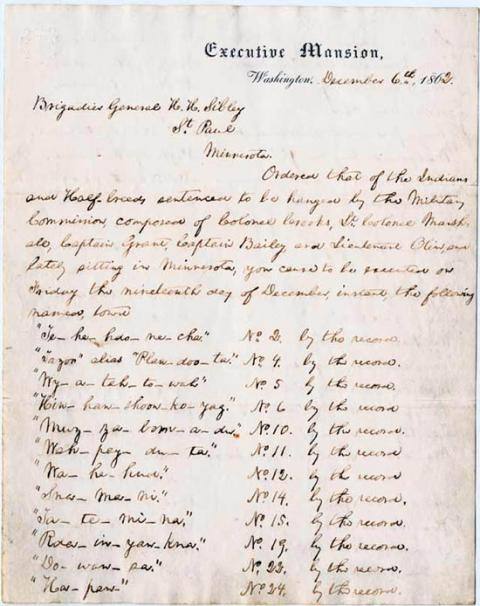 Executive Mansion,
Washington, December 6th, 1862.
Brigadier General H. H. Sibley
St Paul
Minnesota.
Ordered that of the Indians
and Half-breeds sentenced to be hanged by the Military
Commission, composed of Colonel Crooks, Lt. Colonel Marsh-
all, Captain Grant, Captain Bailey and Lieutenant Olin, and
lately sitting in Minnesota, you cause to be executed on
Friday the nineteenth day of December, instant, the following
names, to wit
"Te-he-hdo-ne-cha." No 2. by the record.
"Tazoo" alias "Plan-doo-ta." No 4. by the record.
"Wy-a-tah-to-wah" No 5 by the record.
"Hin-han-shoon-ko-yag." No 6 by the record
"Muz-za-bom-a-du." No 10. by the record.
"Wah-pey-du-ta." No 11. by the record.
"Wa-he-hud." No 12. by the record.
"Sna-ma-ni." No 14. by the record.
"Ta-te-mi-na." No 15. by the record.
"Rda-in-yan-kna." No 19. by the record.
"Do-wan-sa." No 22. by the record.
"Ha-pan" No 24. by the record.